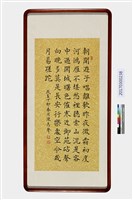 朝聞遊子唱離歌昨夜微霜初度
河鴻雁不堪愁裡聽雲山況是客
中過關城曙色催寒近御苑砧聲
向晚多莫是長安行樂處空令歲
月易蹉跎